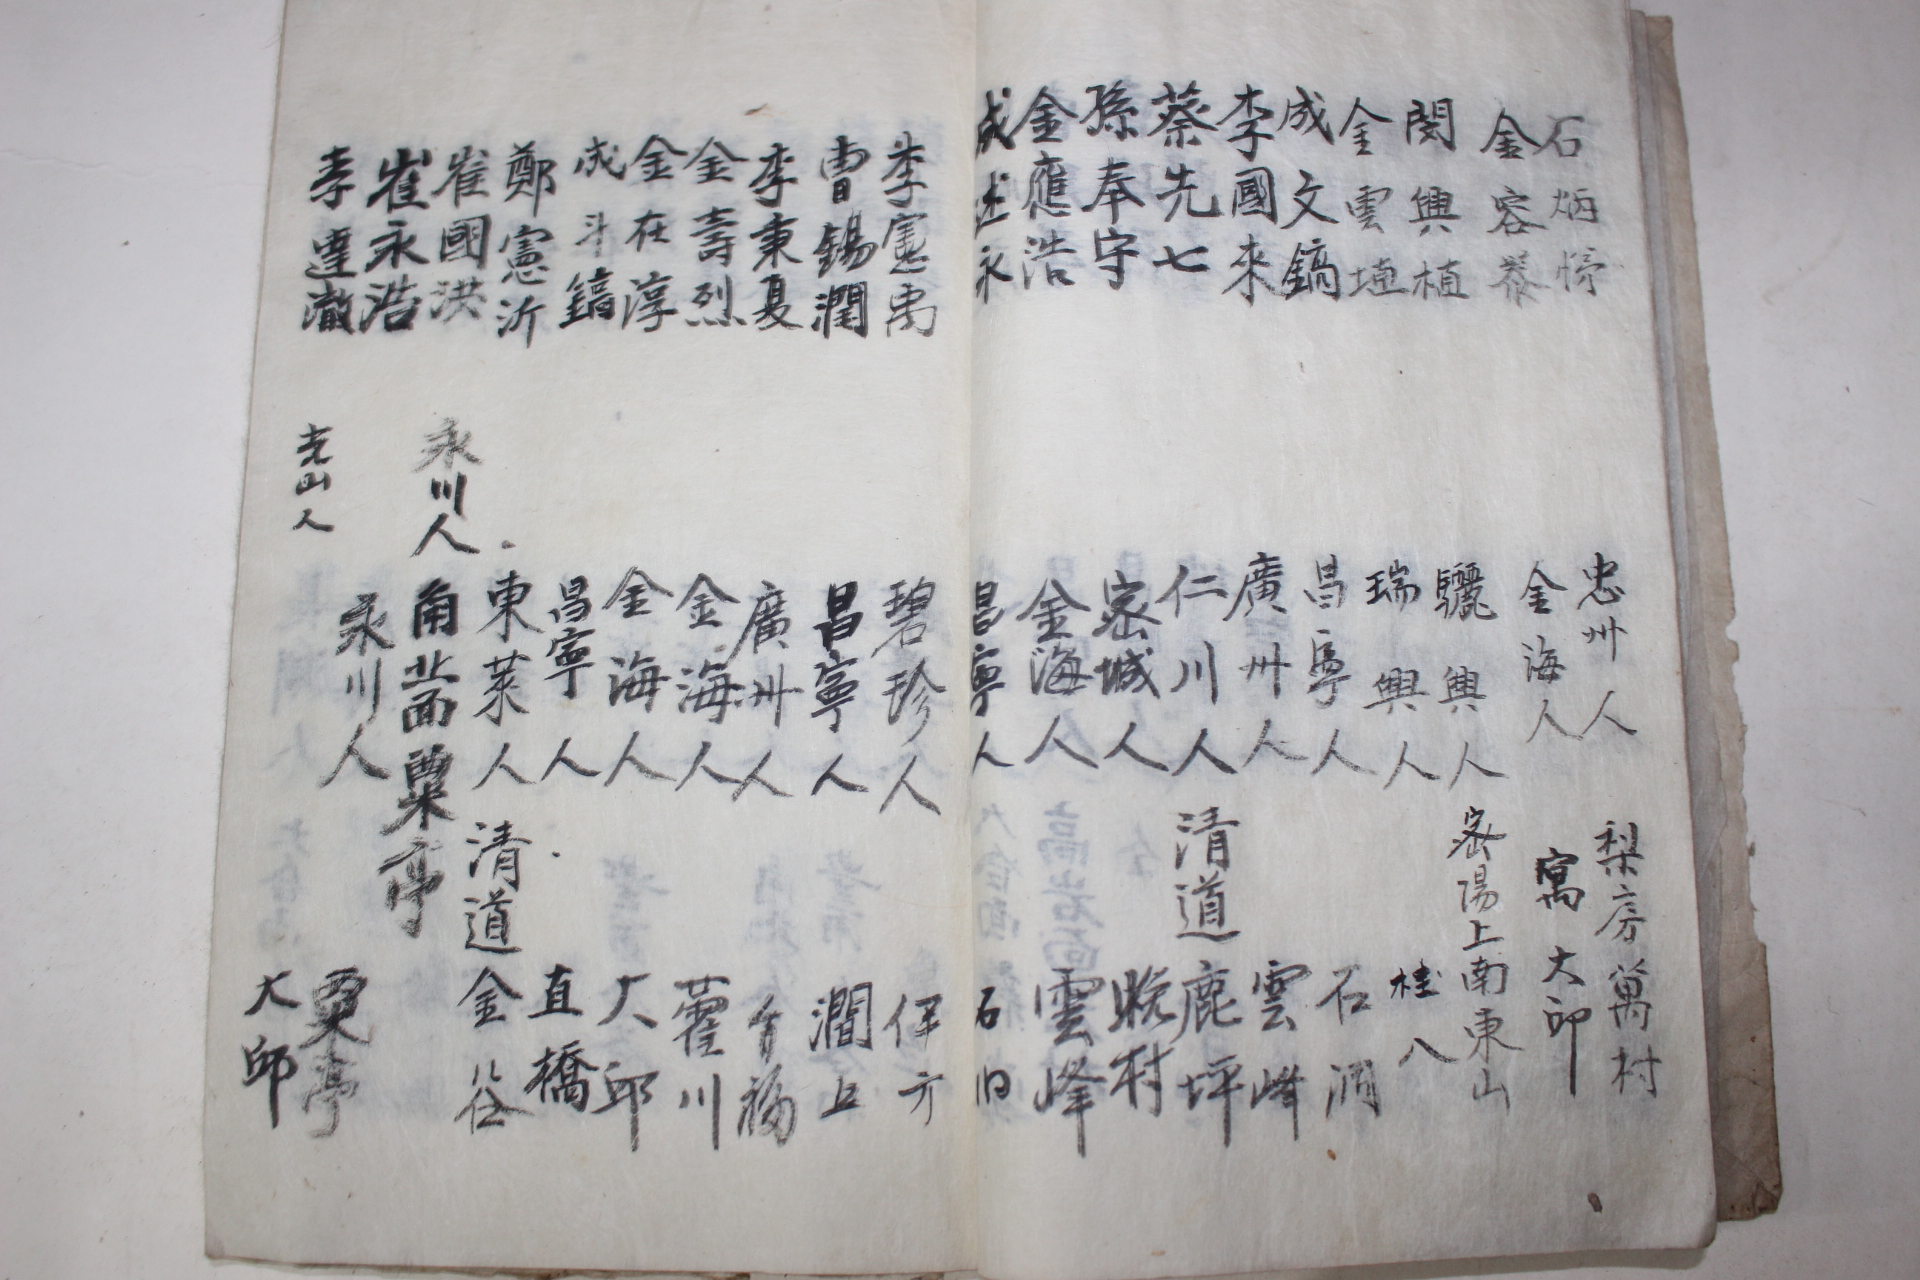 石炳 忠州人 梨房萬村
金容 金海人 寓大邱
閔興植 驪興人 密陽上南東山
金雲 瑞興人 桂八
成文鎬 昌寧人 石洞
李國來 廣州人 雲峰
蔡先七 仁川人 清道鹿坪
孫奉守 密城人 晩村
金應浩 金海人 雲峰
成述永 昌寧人 石旧
李憲禹 碧珍人 伊方
曺錫潤 昌寧人 澗上
李秉夏 廣州人 介福
金壽烈 金海人 藿川
金在淳 金海人 大邱
成斗鎬 昌寧人 直橋
鄭憲沂 東萊人 清道金谷
崔國洪 永川人 角北面粟亭
崔永浩 永川人 粟亭
李達澈 光山人 大邱